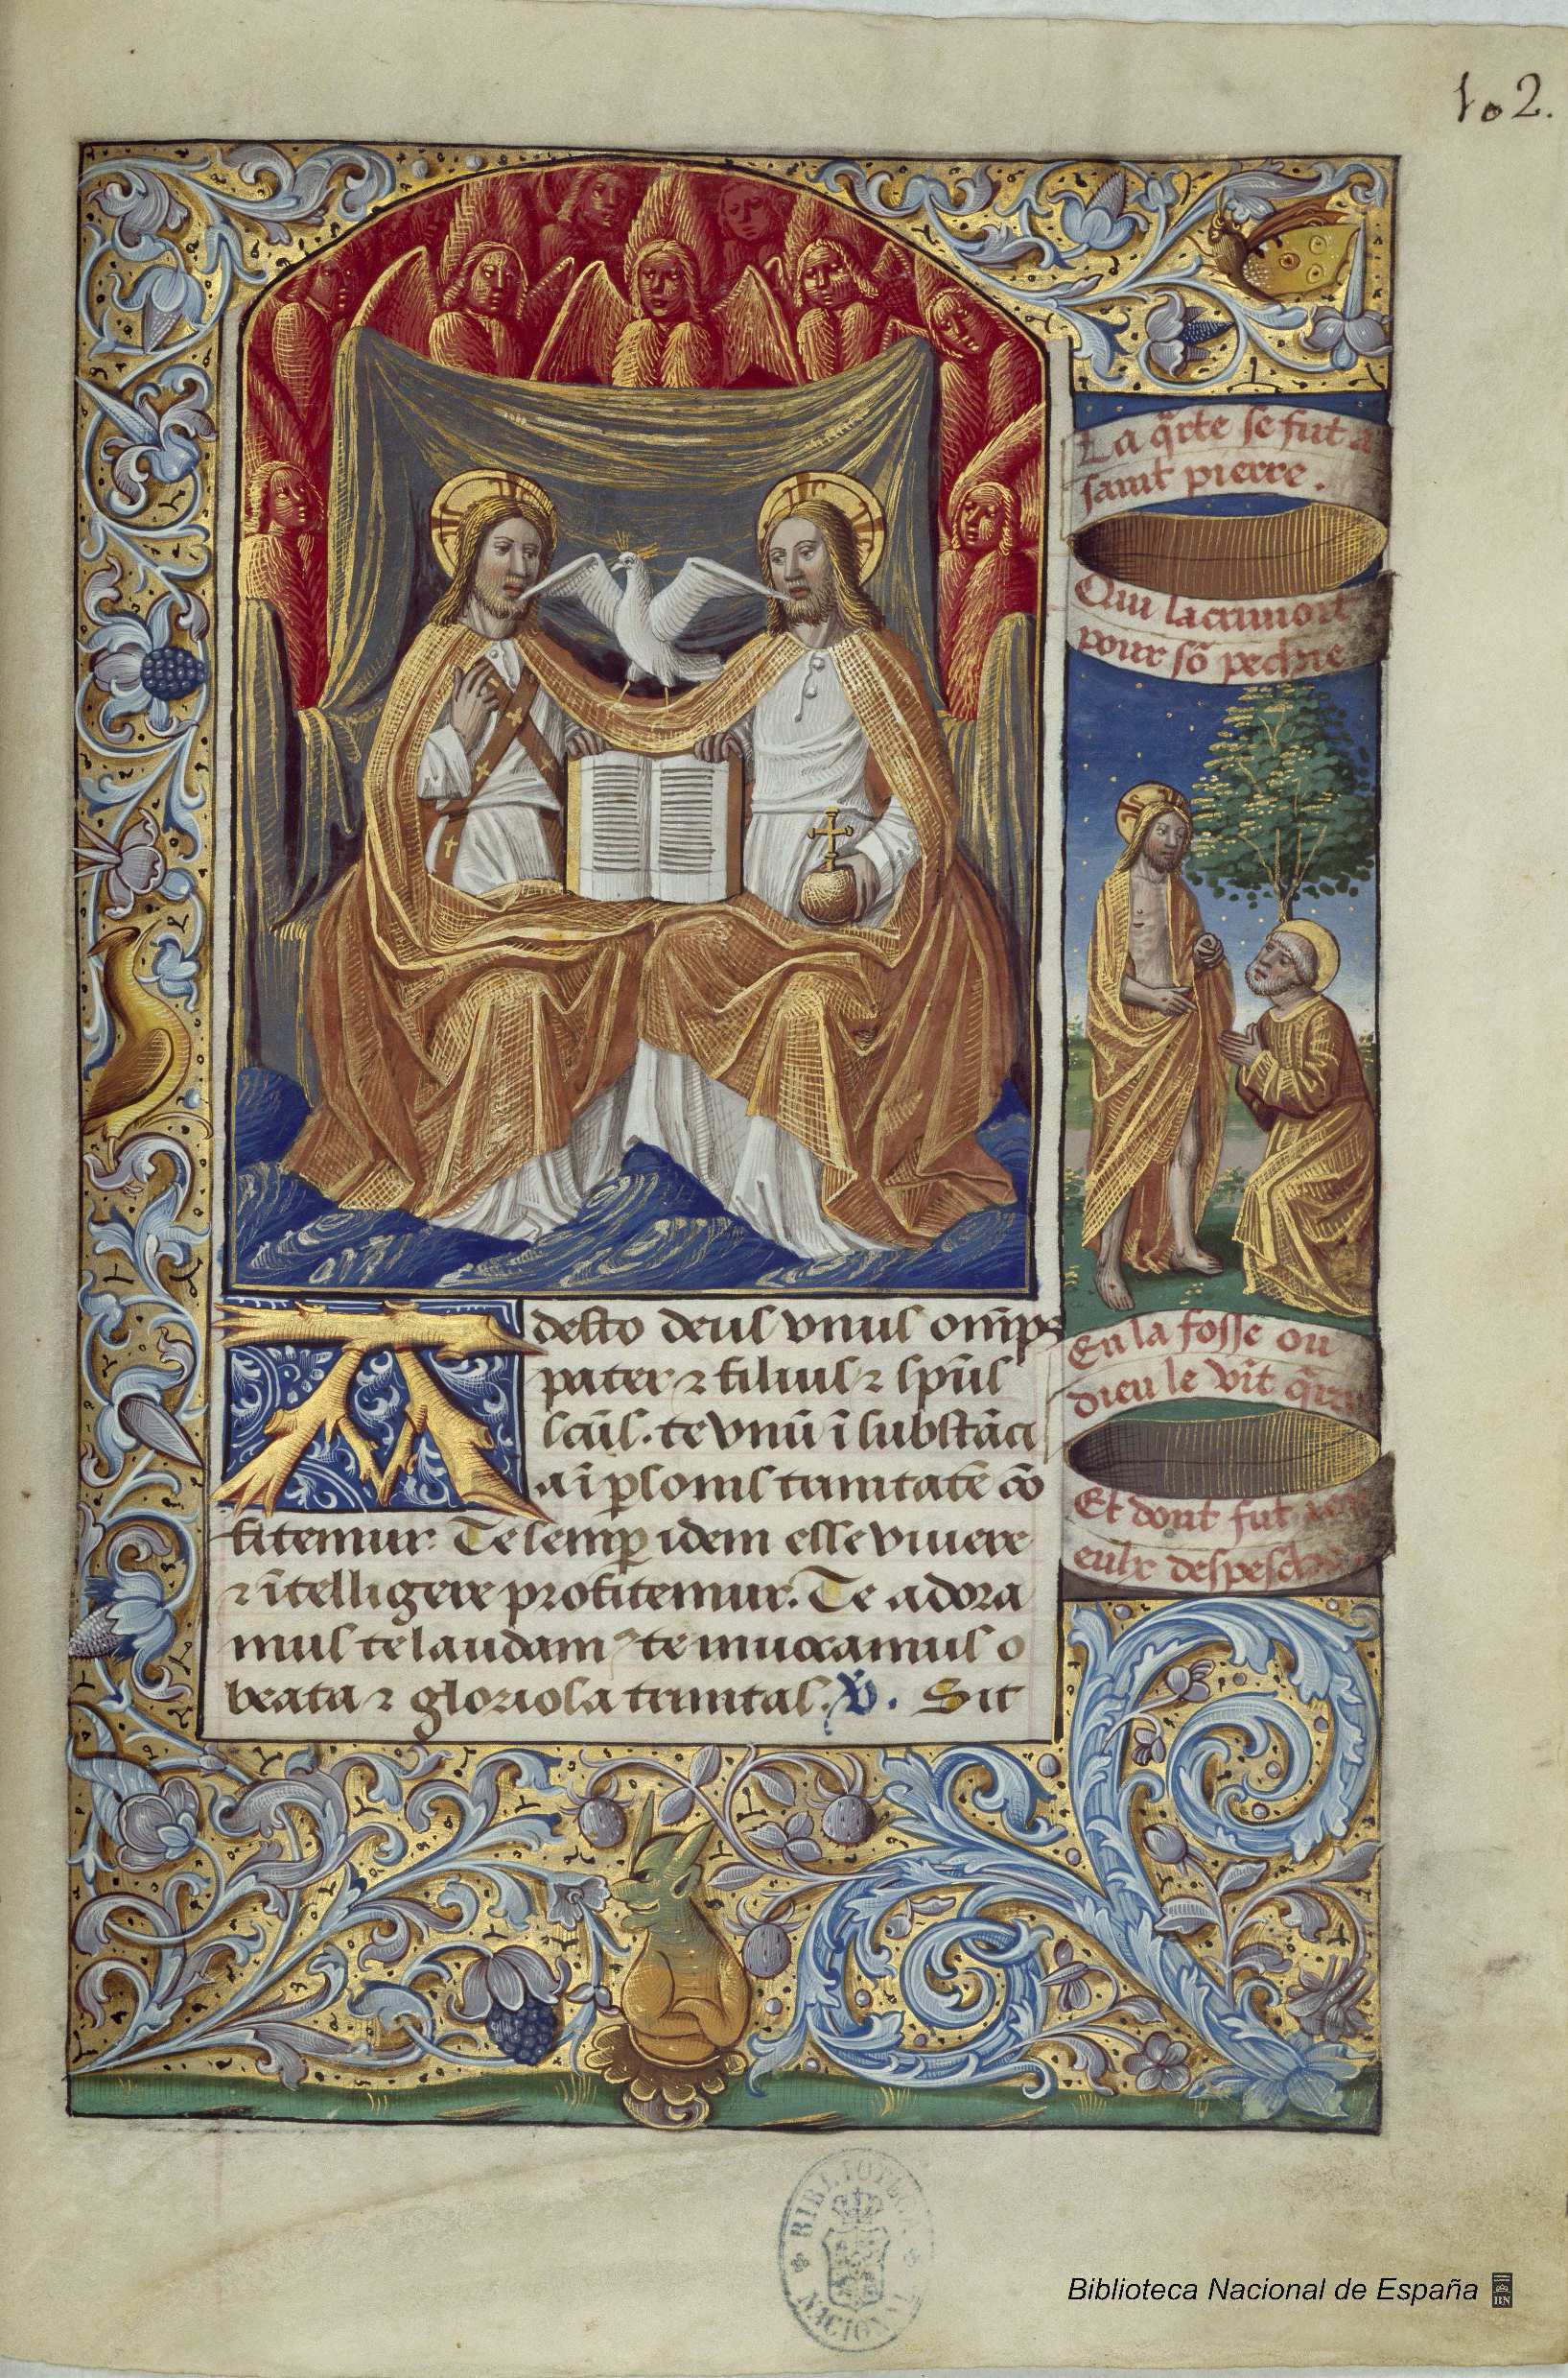 102.
La q̃rte se fut a
saint pierre.
Qui lacrimoit
pour sō peché
En la fosse ou
dieu le vīt
Et dont fut
despesch
Adesto deus vnus om̄ps
pater ⁊ filius ⁊ sp̄us
sc̄us. te vnū ī substāci
a ī ꝑsonis trinitatē cō
fitemur. Te semꝑ idem esse viuere
⁊ ītelligere profitemur. Te adora
mus te laudam⁹ te inuocamus o
beata ⁊ gloriosa trinitas. V̄. Sit
BIBLIOTECA
NACIONAL
Biblioteca Nacional de España
BN